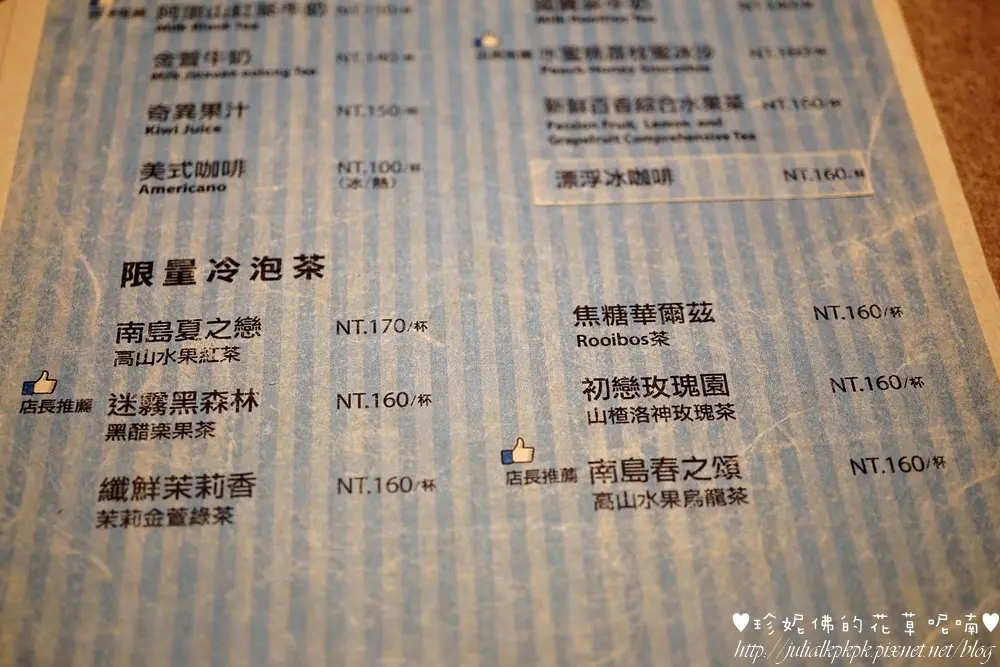 金萱牛奶
奇異果汁 NT.150/杯
Kiwi Juice
美式咖啡 NT.100/杯
Americano (冰/熱)
NT.160/杯
新鮮百香綜合水果茶 NT.160/杯
Passion Fruit, Lemon, and
Grapefruit Comprehensive Tea
漂浮冰咖啡 NT.160/杯
限量冷泡茶
南島夏之戀 NT.170/杯
高山水果紅茶
店長推薦 迷霧黑森林 NT.160/杯
黑醋栗果茶
纖鮮茉莉香 NT.160/杯
茉莉金萱綠茶
焦糖華爾茲 NT.160/杯
Rooibos茶
初戀玫瑰園 NT.160/杯
山楂洛神玫瑰茶
店長推薦 南島春之頌 NT.160/杯
高山水果烏龍茶
♥珍妮佛的花草呢喃♥
http://julialkpkpk.pixnet.net/blog